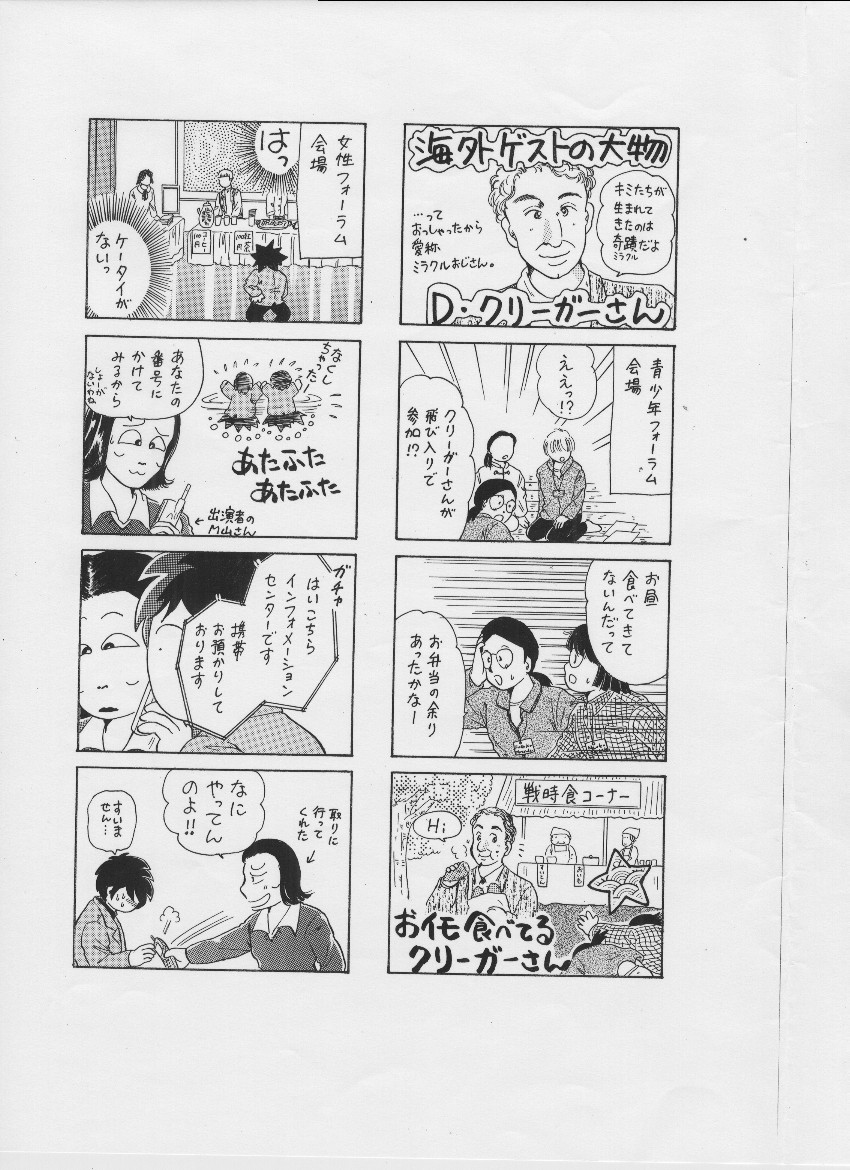 海外ゲストの大物
キミたちが
生まれて
きたのは
奇蹟だよ
ミラクル
…って
おっしゃったから
愛称
ミラクルおじさん。
D・クリーガーさん
青少年フォーラム
会場
ええっ!?
クリーガーさんが
飛び入りで
参加!?
お昼
食べてきて
ないんだって
お弁当の余り
あったかなー
戦時食コーナー
Hi
すいとん
おイモ食べてる
クリーガーさん
女性フォーラム
会場
はっ
紅茶
100円
コーヒー
ケータイが
ないっ
なくし
ちゃったー
あなたの
番号に
かけて
みるから
しょーが
ないわね
あたふた
あたふた
←出演者の
M山さん
ガチャ
はいこちら
インフォメーション
センターです
携帯
お預かりして
おります
取りに
行って
くれた
なに
やってん
のよ!!
すいま
せん…